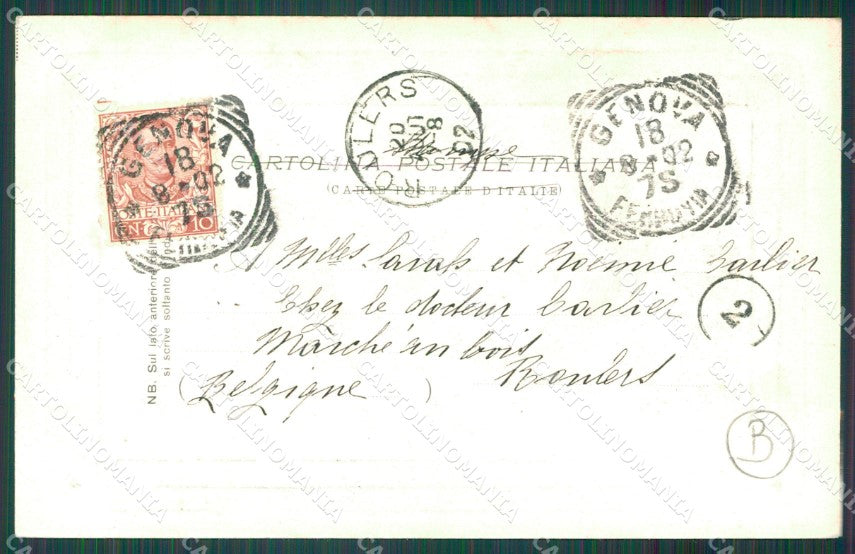 GENOVA
18
8 02
7S
FERROVIA
POSTE ITALIANE
10
ROULERS
20
8
02
GENOVA
18
8 02
7S
FERROVIA
CARTOLINA POSTALE ITALIANA
(CARTE POSTALE D'ITALIE)
A Miles Sarah et Noémie Carlier
Chez le docteur Carlier
Marché au bois
Roulers
(Belgique)
2
B
NB. Sul lato anteriore
si scrive soltanto
CARTOLINOMANIA